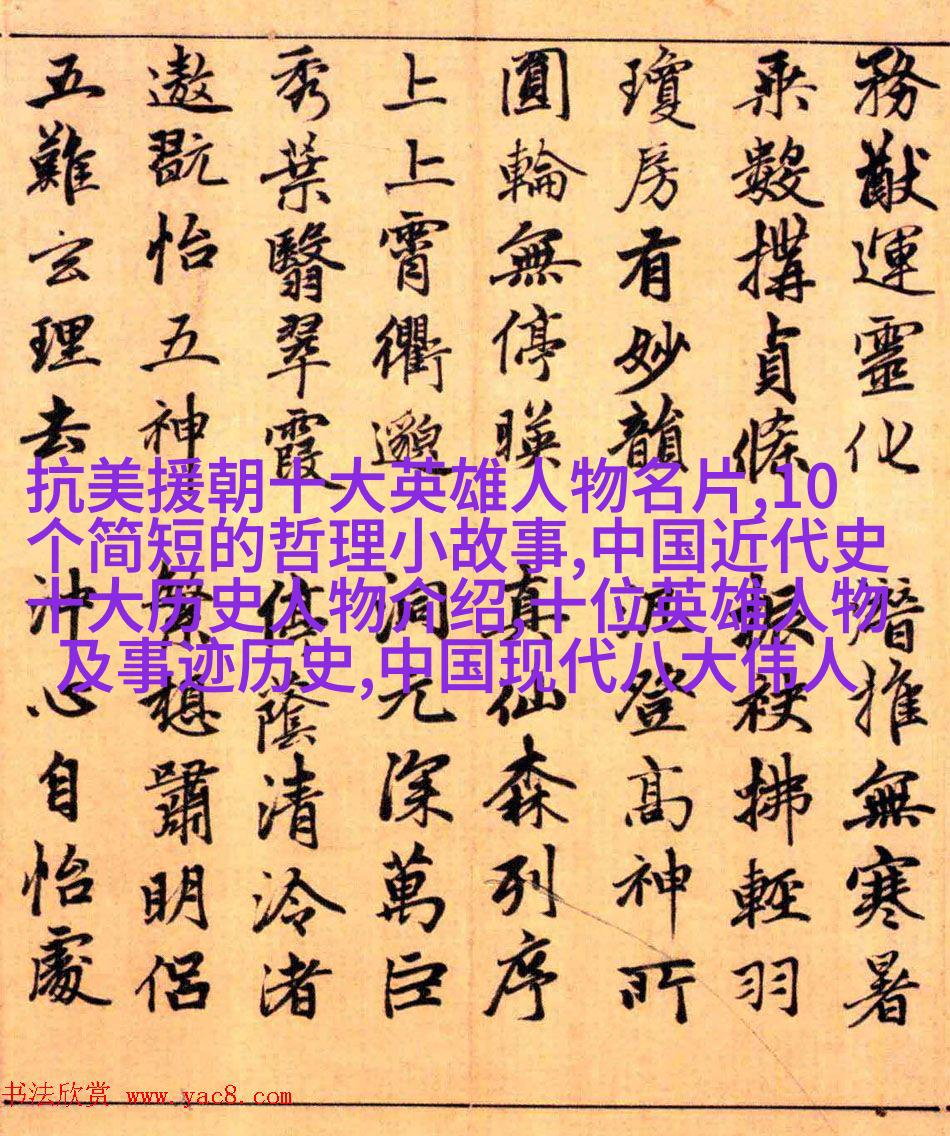 務猷運靈化 暗推無寒暑
乘數搆貞條 振袂拂輕羽
瓊房有妙韻 泯登高神所
圓輪無停暎 真仙森列序
上上霄衢邈 洞元深萬巨
秀葉翳翠霞 蔭清泠渚
遨翫怡五神 想嘯明侶
五難玄理去 沖心自怡處
抗美援朝十大英雄人物名片,10
个简短的哲理小故事,中国近代史
十大历史人物介绍,十位英雄人物
及事迹历史,中国现代八大伟人
书法欣赏 www.yac8.com